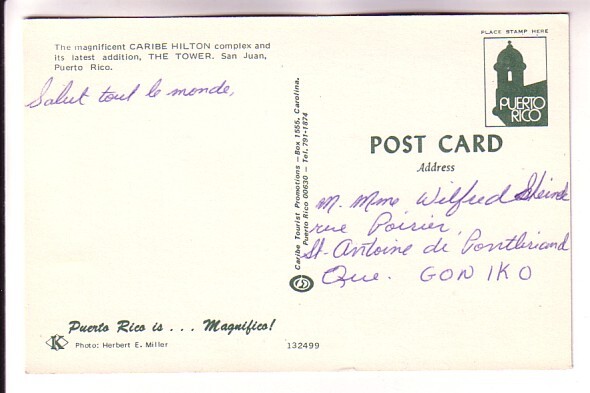 The magnificent CARIBE HILTON complex and
its latest addition, THE TOWER. San Juan,
Puerto Rico.
Salut tout le monde,
PLACE STAMP HERE
PUERTO
RICO
POST CARD
Address
M. Mme Wilfred
rue Poirier,
St-Antoine de Pontbriand
Que. GON IKO
Caribe Tourist Promotions – Box 1555, Carolina,
Puerto Rico 00630 – Tel. 791-1874
Puerto Rico is . . . Magnifico!
K
Photo: Herbert E. Miller
132499